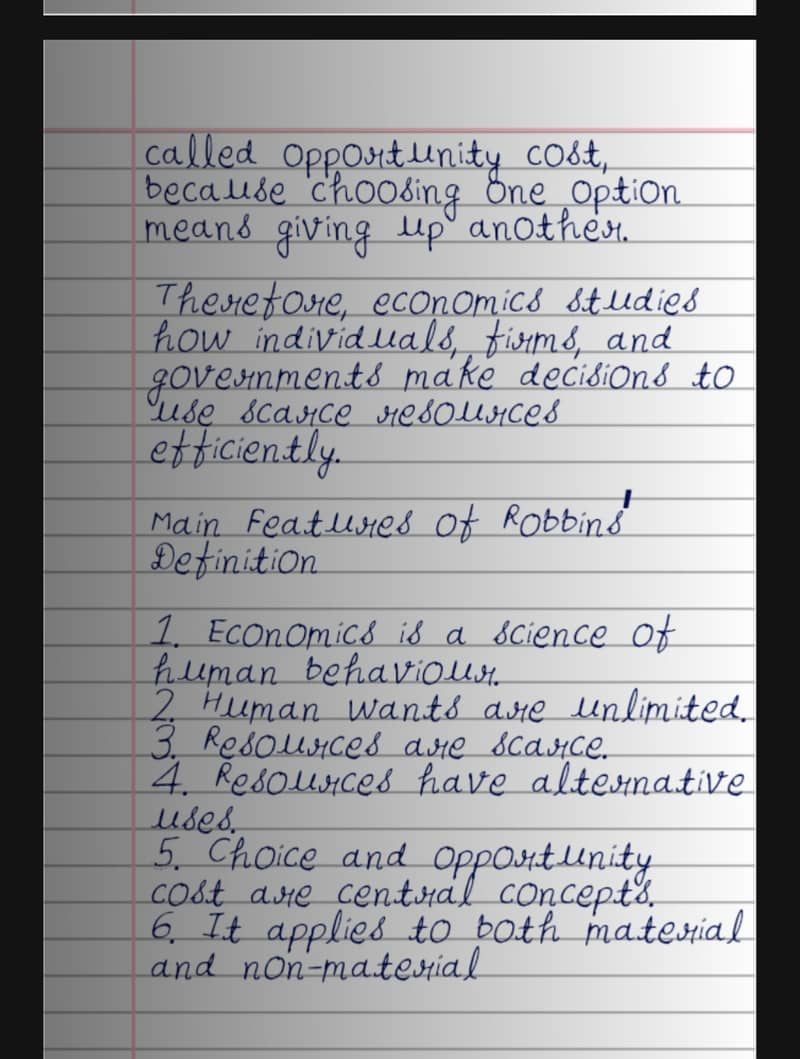 called opportunity cost,
because choosing one option
means giving up another.
Therefore, economics studies
how individuals, firms, and
governments make decisions to
use scarce resources
efficiently.
Main Features of Robbins'
Definition
1. Economics is a science of
human behaviour.
2. Human wants are unlimited.
3. Resources are scarce.
4. Resources have alternative
uses.
5. Choice and opportunity
cost are central concepts.
6. It applies to both material
and non-material